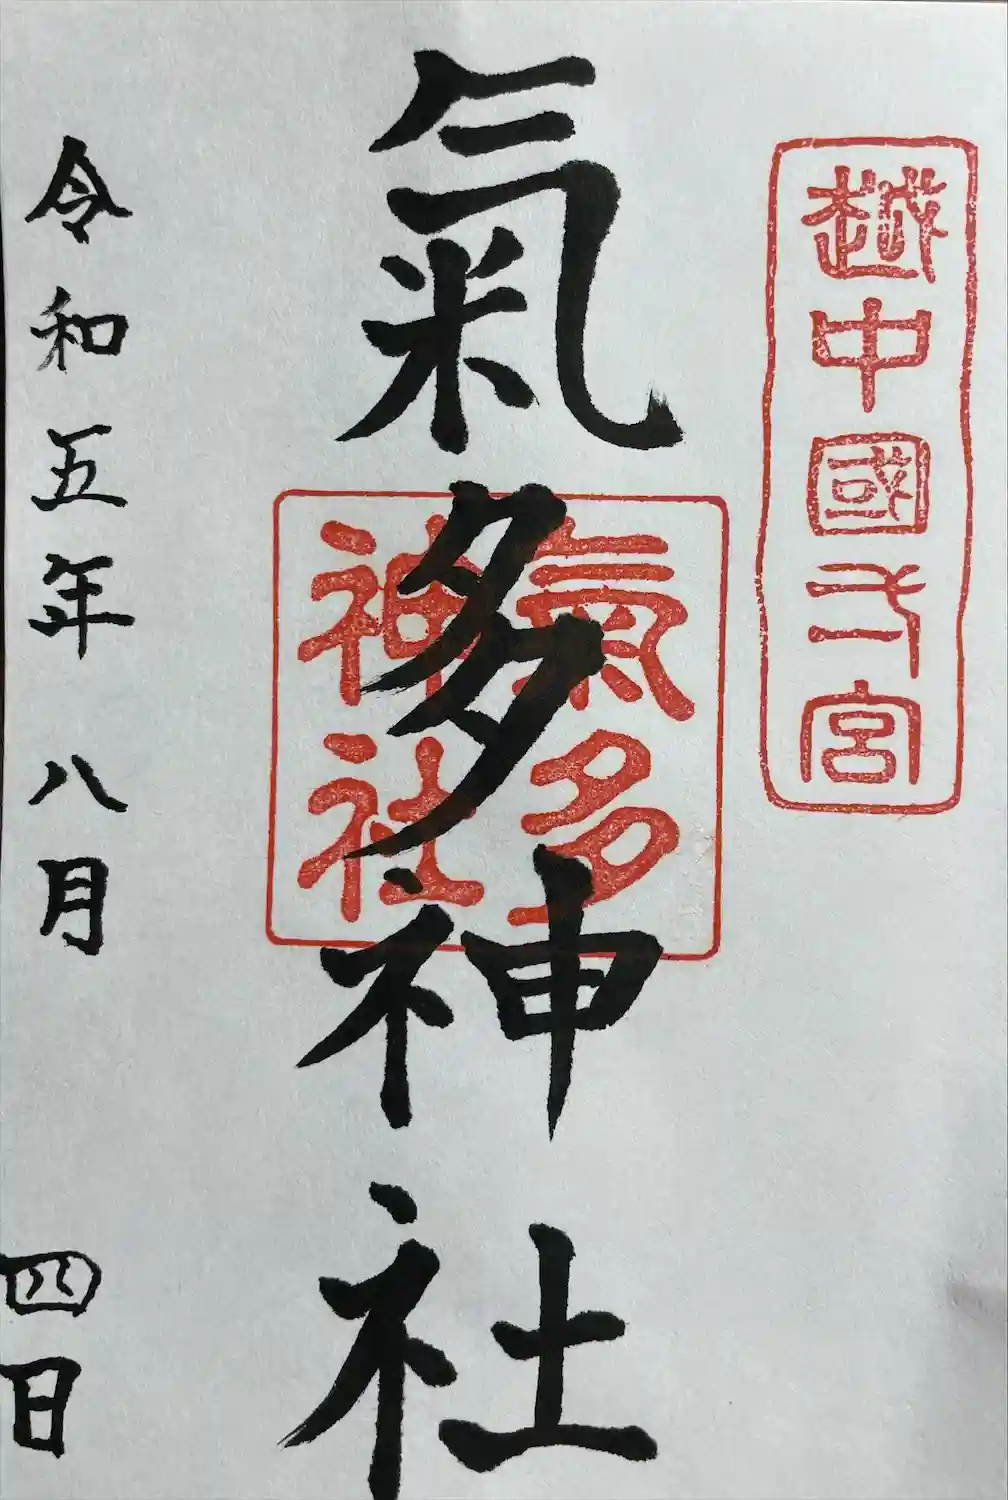 越中國弌宮
氣多神社
氣多
神社
令和五年八月四日